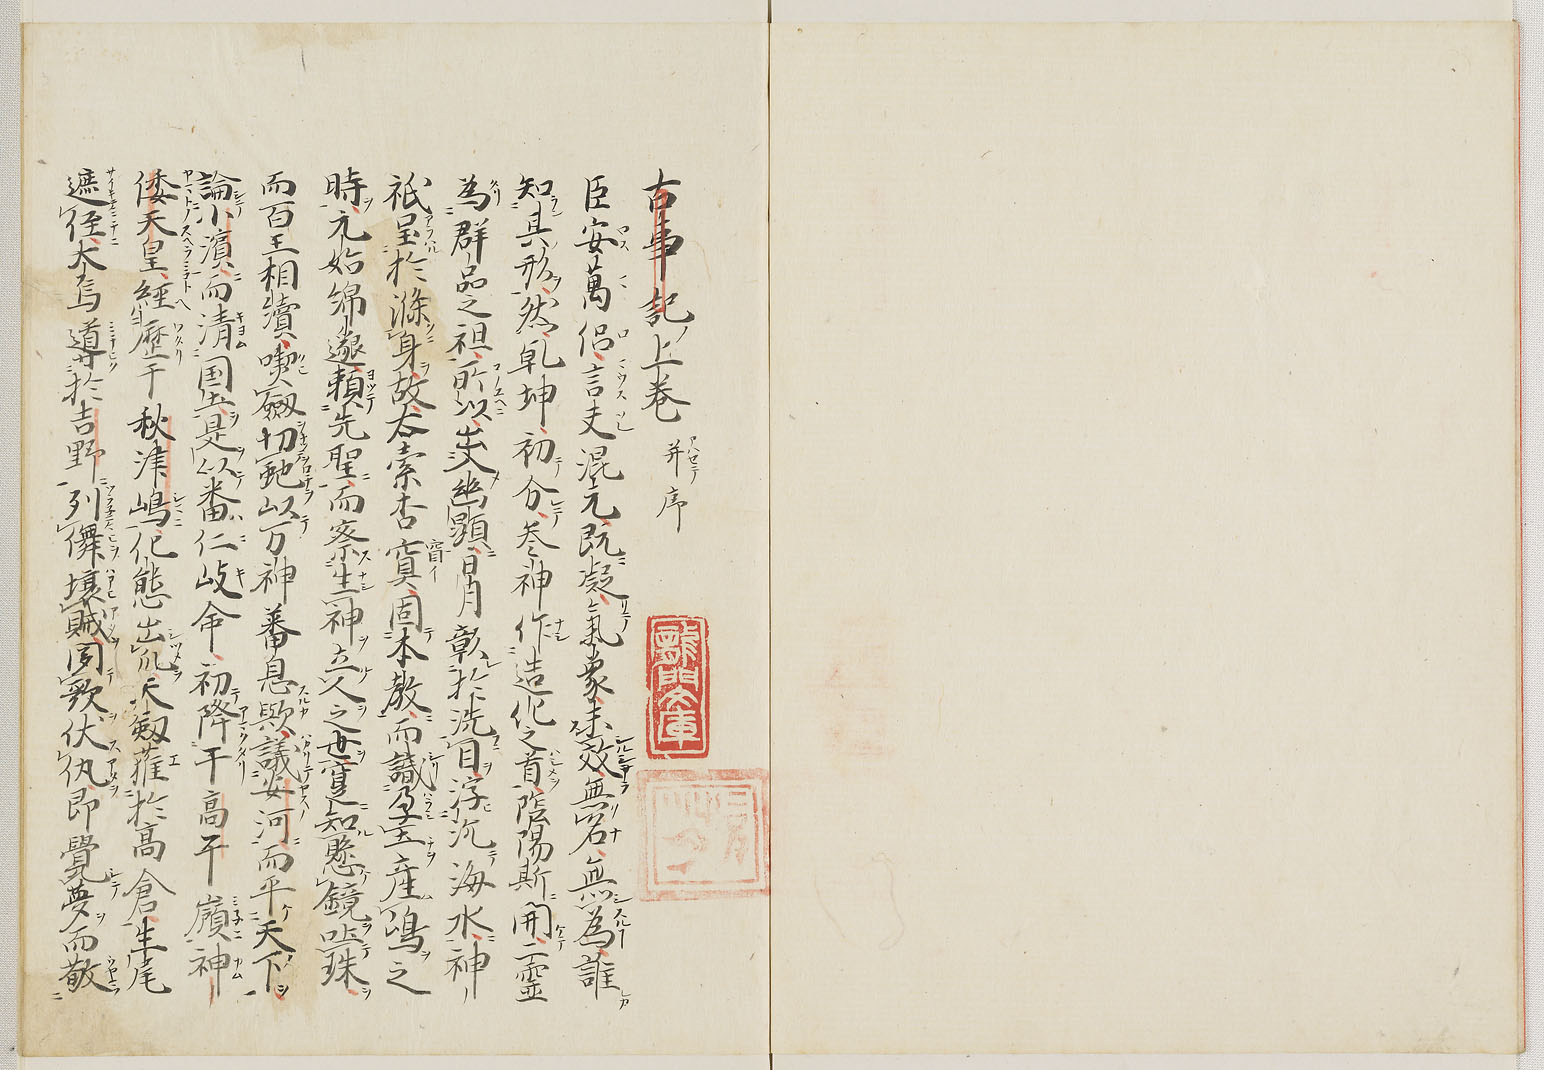 古事記上巻 并序
臣安萬侶言夫混元既凝氣象未效無名無為誰
知其形然乾坤初分叅神作造化之首陰陽斯開二霊
為群品之祖所以出入幽顕日月彰於洗目浮沉海水神
祇呈於滌身故太素杳冥固本教而識孕土産嶋之
時元始綿邈頼先聖而察生神立人之世寔知懸鏡吐珠
而百王相續喫釼切虵以万神蕃息歟議安河而平天下
論小濱而清国土是以番仁岐命初降于高千嶺神
倭天皇経歴于秋津嶋化熊出爪天釼蘿於高倉生尾
遮径大烏導於吉野列儛壌賊聞歌伏仇即覺夢而敬
龍門文庫